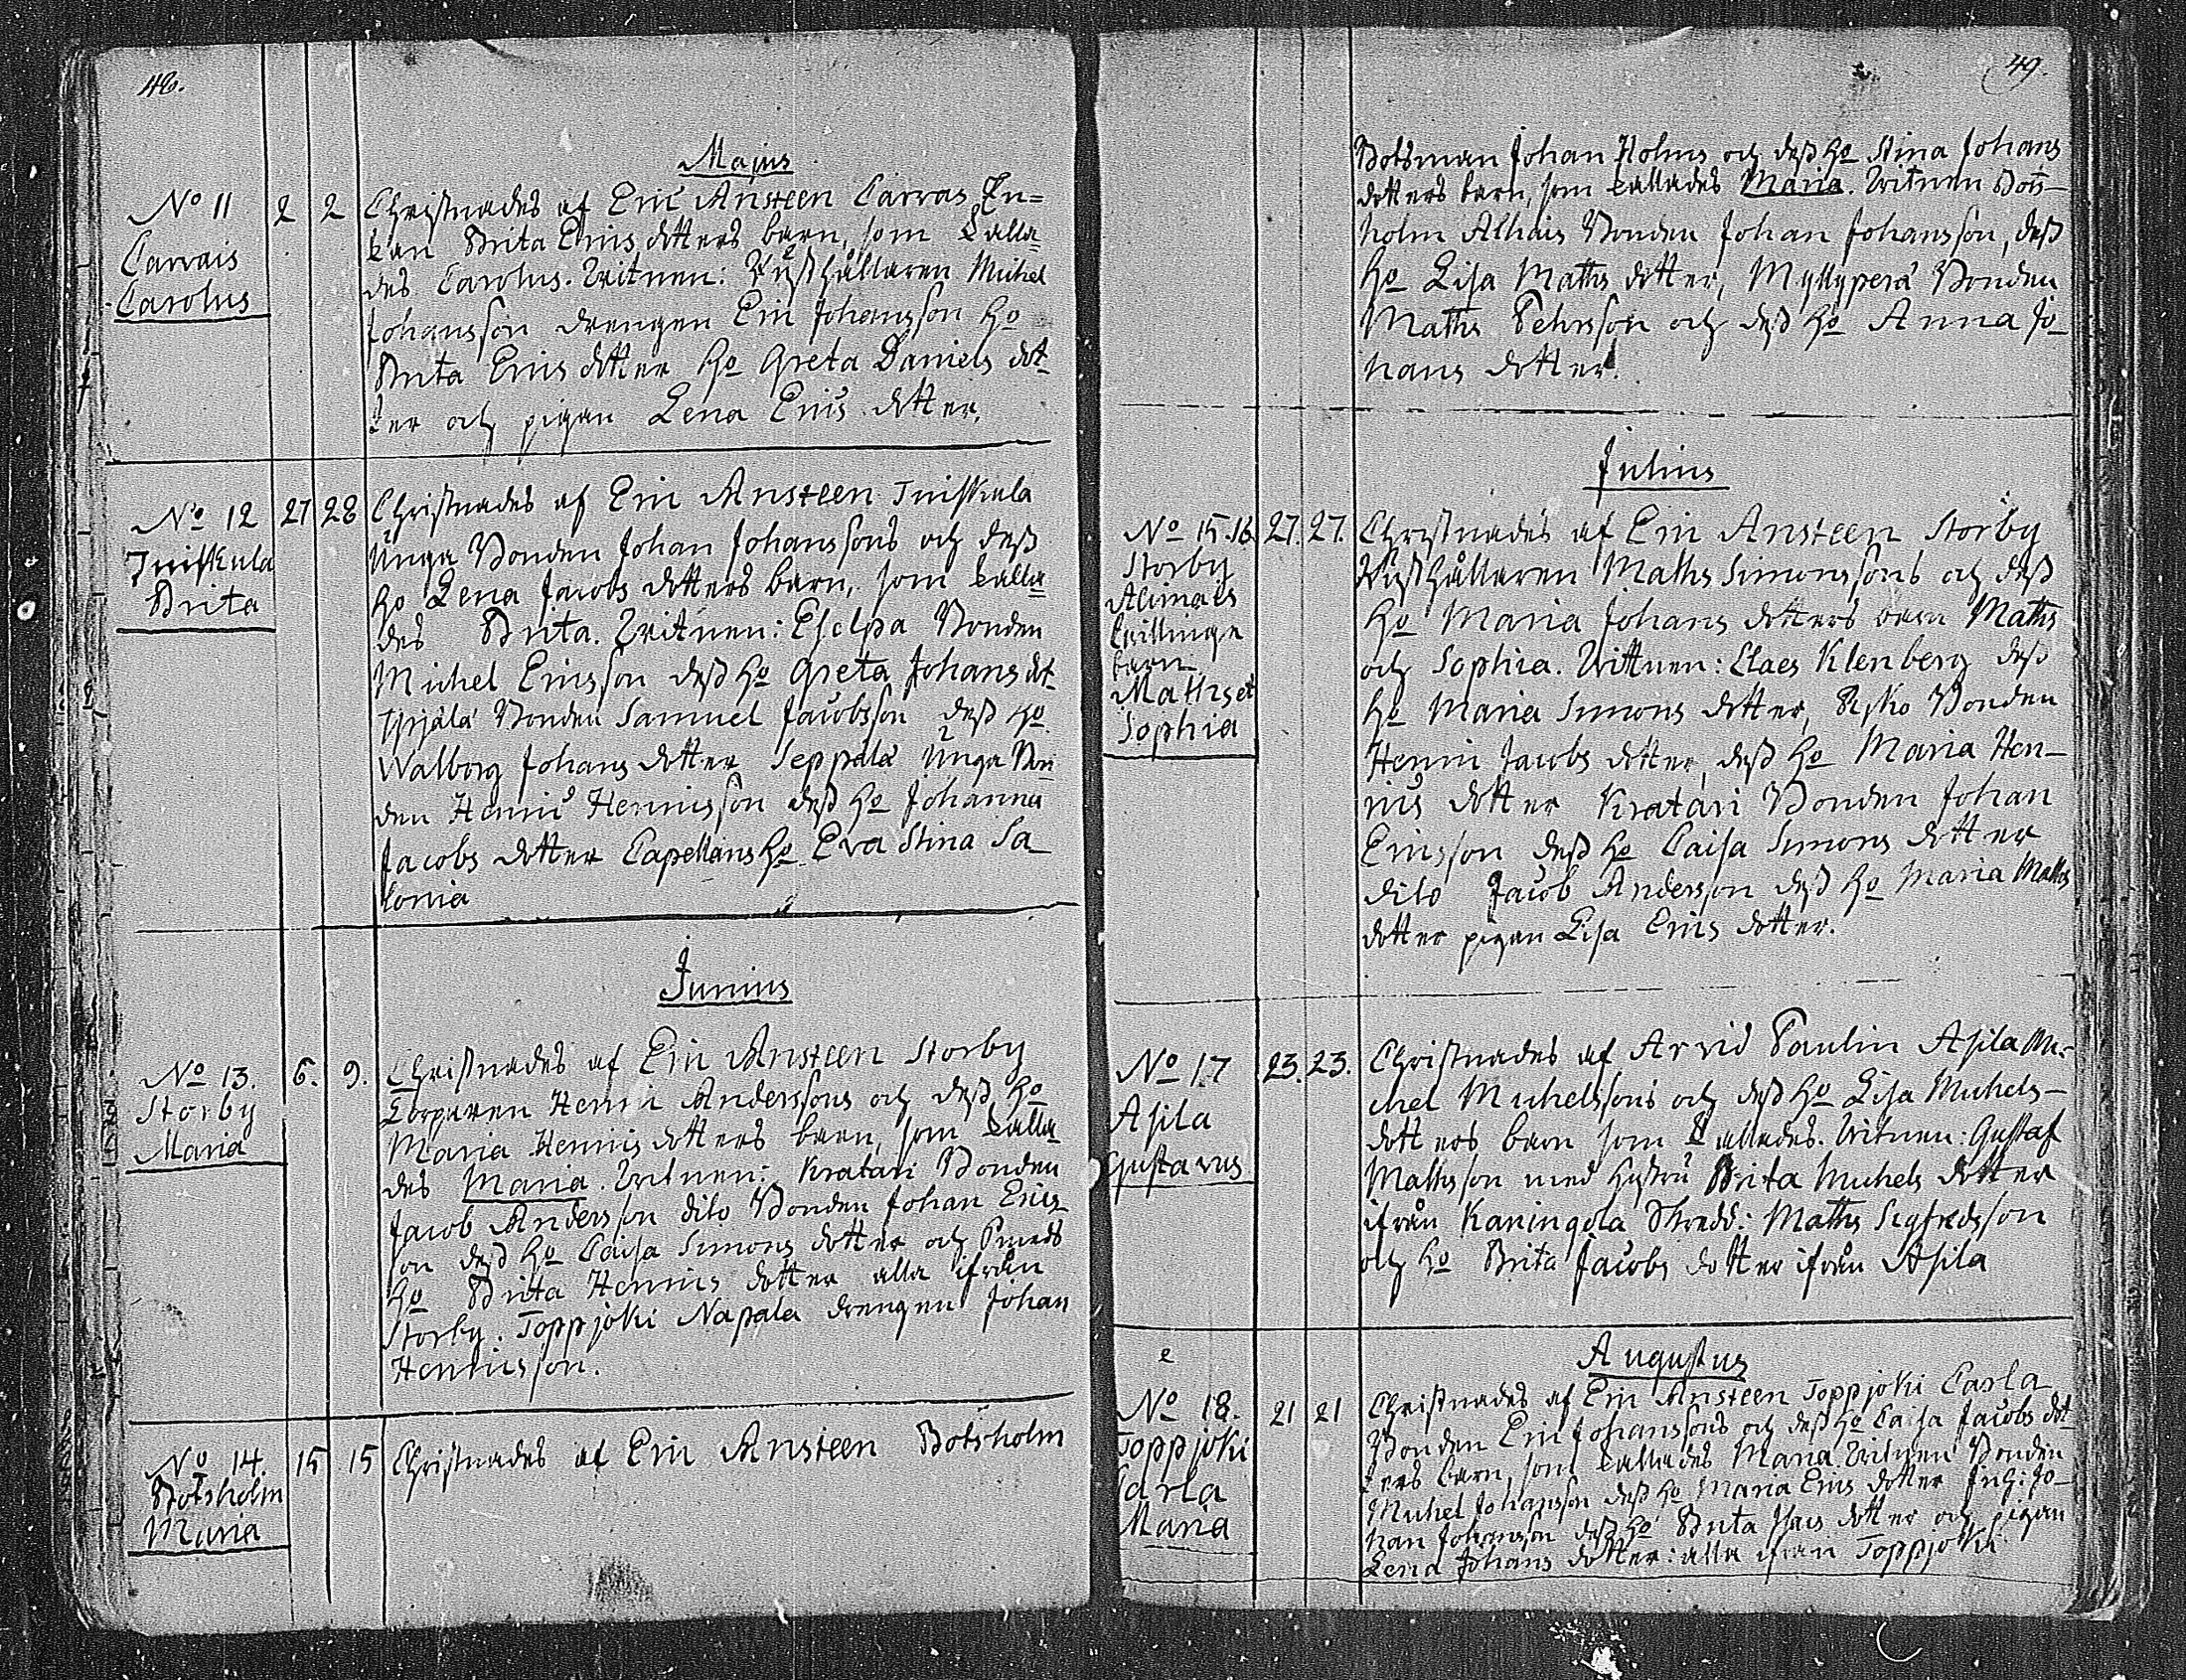 48.
Majus
No 11 2 2 Christnades af Eric Ansteen Carvas En=
Carvais kan Brita Erics dotters barn, som kalla=
Carolus des Carolus. Vitnen: Rusthållaren Michel
Johansson drengen Eric Johansson Ho
Brita Erics dotter Ho Greta Daniels dot
ter och pigan Lena Erics dotter.
No 12 27 28 Christnades af Eric Ansteen Juniskula
Juniskula Unga Bonden Johan Johanssons och dess
Brita Ho Lena Jacobs dotters barn, som kalla=
des Brita. Vitnen: Eselpa Bonden
Michel Ericsson dess Ho Greta Johans dot
Bonden Samuel Jacobsson dess Ho
Walborg Johans dotter Seppälä Unga Bon
den Henric Henricsson dess Ho Johanna
Jacobs dotter Capellans Ho Eva Stina Sa_
lonia
Junius
No 13. 6. 9. Christnades af Eric Ansteen Storby
Storby Torparen Henric Anderssons och dess Ho
Maria Maria Henrics dotters barn, som kalla
des Maria. Vitnen: Kratari Bonden
Jacob Andersson dito Bonden Johan Erics
son dess Ho Caisa Simons dotter och
Ho Brita Henrics dotter alla ifrån
Storby. Toppjoki Napala drengen Johan
Henricsson.
No 14. 15 15 Christnades af Eric Ansteen Botsholm
Botsholm
Maria
49.
Botsman Johan Holms och dess Ho Stina Johans
dotters barn, som kallades Maria. Vitnen Bots-
holm Alhais Bonden Johan Johansson, dess
Ho Lisa Maths dotter, Myllyperä Bonden
Maths Pehrsson och dess Ho Anna Jo_
hans dotter.
Julius
No 15.16. 27. 27. Christnades af Eric Ansteen Storby
Storby Rusthållaren Maths Simonssons och dess
Alimais Ho Maria Johans dotters barn Maths
tvillinge och Sophia. Vittnen: Claes Klenberg dess
barn Ho Maria Simons dotter, Bonden
Maths et Henric Jacobs dotter, dess Ho Maria Hen-
Sophia rics dotter Kratari Bonden Johan
Ericsson dess Ho Caisa Simons dotter
dito Jacob Andersson dess Ho Maria Maths
dotter pigan Lisa Erics dotter.
No 17 23. 23. Christnades af Arvid Paulin Asila Mi-
Asila chel Michelssons och dess Ho Lisa Michels-
Gustavus dotters barn som kallades. Vitnen: Gustaf
Mathsson med hustru Brita Michels dotter
ifrån Kaningola Skredd: Maths Sigfredsson
och Ho Brita Jacobs dotter ifrån Asila
Augustus
e
No 18. 21 21 Christnades af Eric Ansteen Toppjoki Carla
Toppjoki Bonden Eric Johanssons och dess Ho Caisa Jacobs dot
Carla ters barn, som kallades Maria. Vitnen Bonden
Maria Michel Johansson dess Ho Maria Erics dotter Inh: Jo-
han Johansson dess Ho Brita Isacs dotter och pigan
Lena Johans dotter: alla ifrån Toppjoki